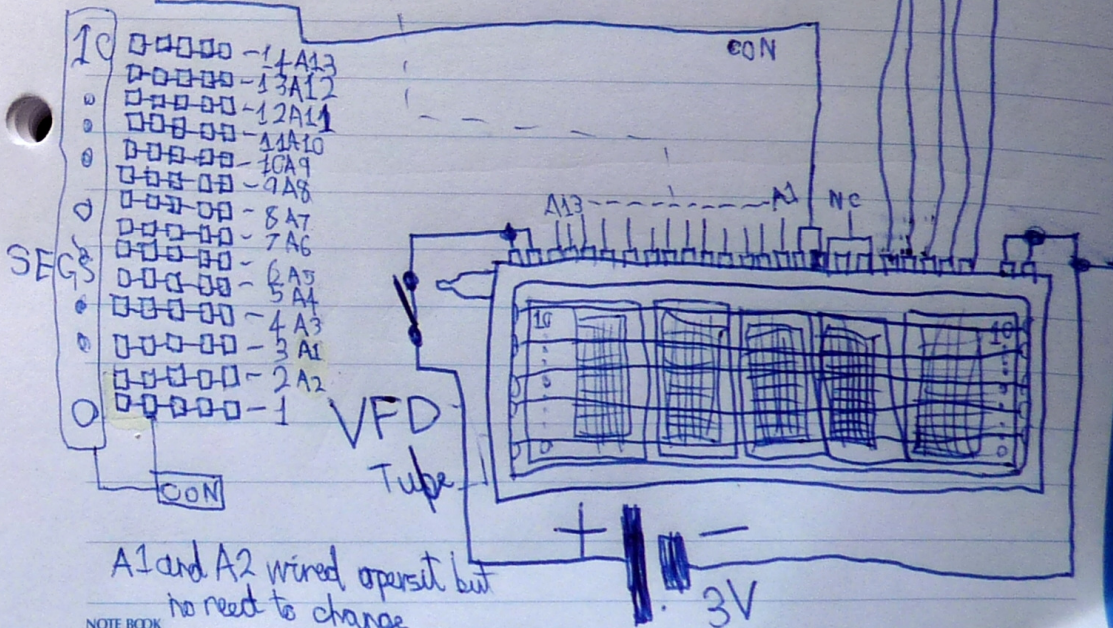 10
CON
14A13
13A12
12A11
11A10
10A9
9A8
8A7
7A6
6A5
5A4
4A3
3A1
2A2
1
0
SEGS
CON
A13 A1 NC
10 10
0 0
VFD
Tube
+ -
3V
A1 and A2 wired opersit but
no need to change
NOTE BOOK